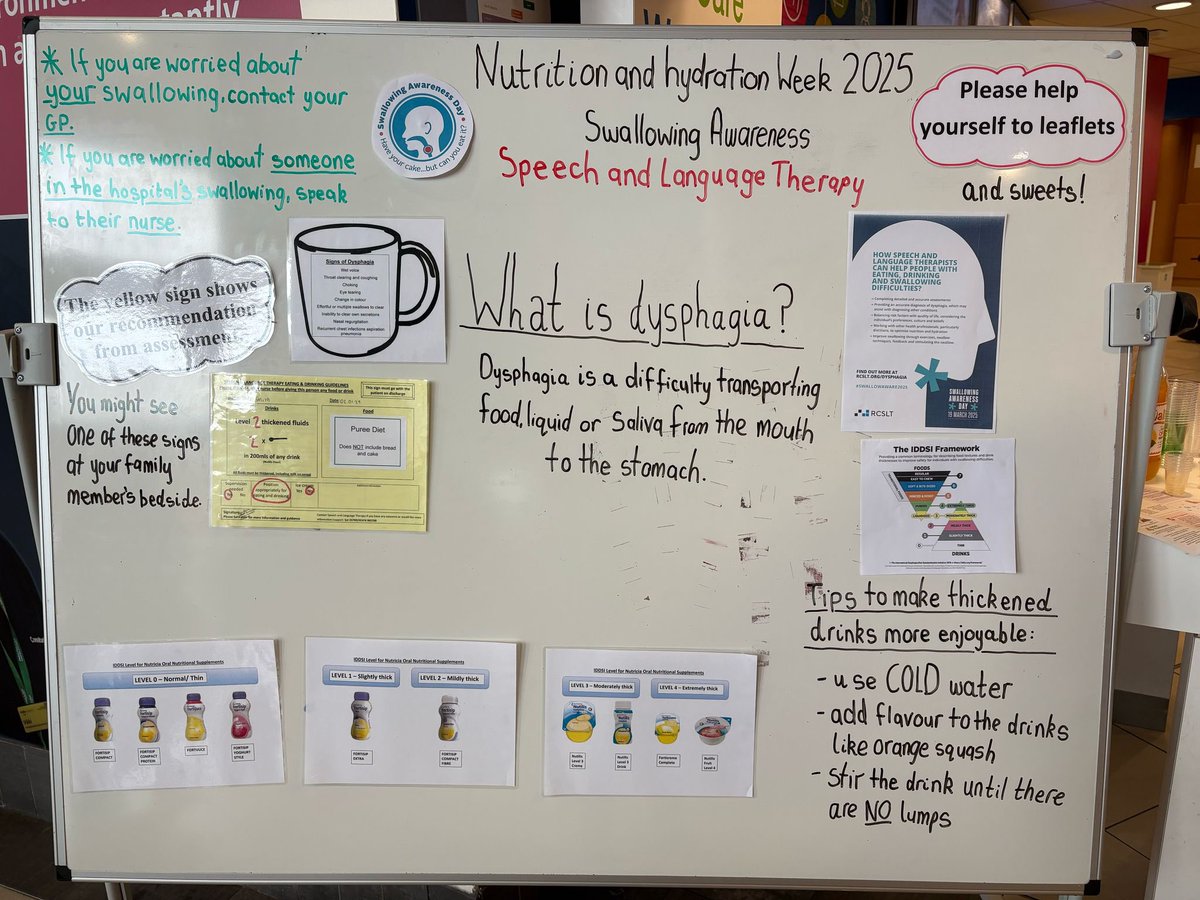 * If you are worried about
your swallowing, contact your
GP.
* If you are worried about someone
in the hospital's swallowing, speak
to their nurse.
Swallowing Awareness Day
Have your cake...but can you eat it?
Nutrition and hydration Week 2025
Swallowing Awareness
Speech and Language Therapy
Please help
yourself to leaflets
and sweets!
The yellow sign shows
our recommendation
from assessment.
Signs of Dysphagia
Wet voice
Throat clearing and coughing
Choking
Eye tearing
Change in colour
Effortful or multiple swallows to clear
Inability to clear own secretions
Nasal regurgitation
Recurrent chest infections aspiration
pneumonia
You might see
one of these signs
at your family
member's bedside.
THERAPY EATING & DRINKING GUIDELINES
nurse before giving this person any food or drink
This sign must go with the
patient on discharge
Drinks
Level 2 thickened fluids
in 200mls of any drink
Food
Puree Diet
Does NOT include bread
and cake
Supervision
needed
No
Position
appropriately for
eating and drinking
What is dysphagia?
Dysphagia is a difficulty transporting
food, liquid or saliva from the mouth
to the stomach.
HOW SPEECH AND
LANGUAGE THERAPISTS
CAN HELP PEOPLE WITH
EATING, DRINKING
AND SWALLOWING
DIFFICULTIES?
FIND OUT MORE AT
RCSLT.ORG/DYSPHAGIA
#SWALLOWAWARE2025
RCSLT
SWALLOWING
AWARENESS
DAY
19 MARCH 2025
The IDDSI Framework
Providing a common terminology for describing food textures and drink
thicknesses to improve safety for individuals with swallowing difficulties
FOODS
REGULAR
EASY TO CHEW
SOFT & BITE-SIZED
MINCED & MOIST
PUREED
EXTREMELY THICK
LIQUIDISED
MODERATELY THICK
MILDLY THICK
SLIGHTLY THICK
THIN
DRINKS
Tips to make thickened
drinks more enjoyable:
- use COLD water
- add flavour to the drinks
like orange squash
- Stir the drink until there
are NO lumps
IDDSI Level for Nutricia Oral Nutritional Supplements
LEVEL 0 – Normal/ Thin
FORTISIP
COMPACT
FORTISIP
COMPACT
PROTEIN
FORTIJUCE
FORTISIP
YOGHURT
STYLE
IDDSI Level for Nutricia Oral Nutritional Supplements
LEVEL 1 – Slightly thick
LEVEL 2 – Mildly thick
FORTISIP
EXTRA
FORTISIP
COMPACT
FIBRE
IDDSI Level for Nutricia Oral Nutritional Supplements
LEVEL 3 – Moderately thick
LEVEL 4 – Extremely thick
Nutilis
Level 3
Creme
Nutilis
Level 3
Drink
Forticreme
Complete
Nutilis
Fruit
Level 4